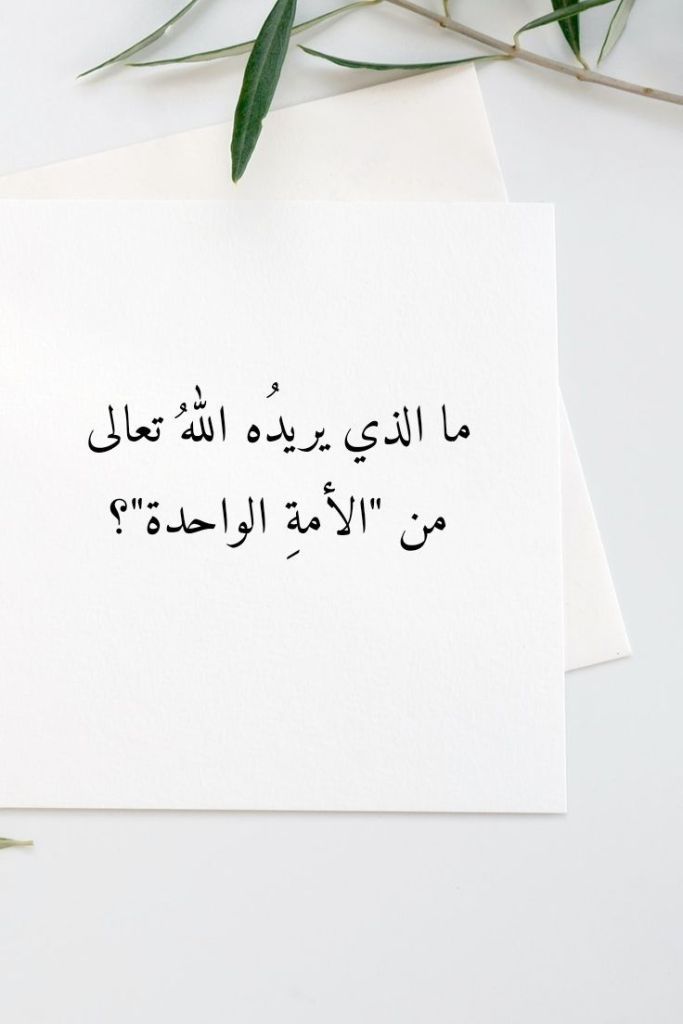 ما الذي يريدُه اللهُ تعالى
من "الأمةِ الواحدة"؟